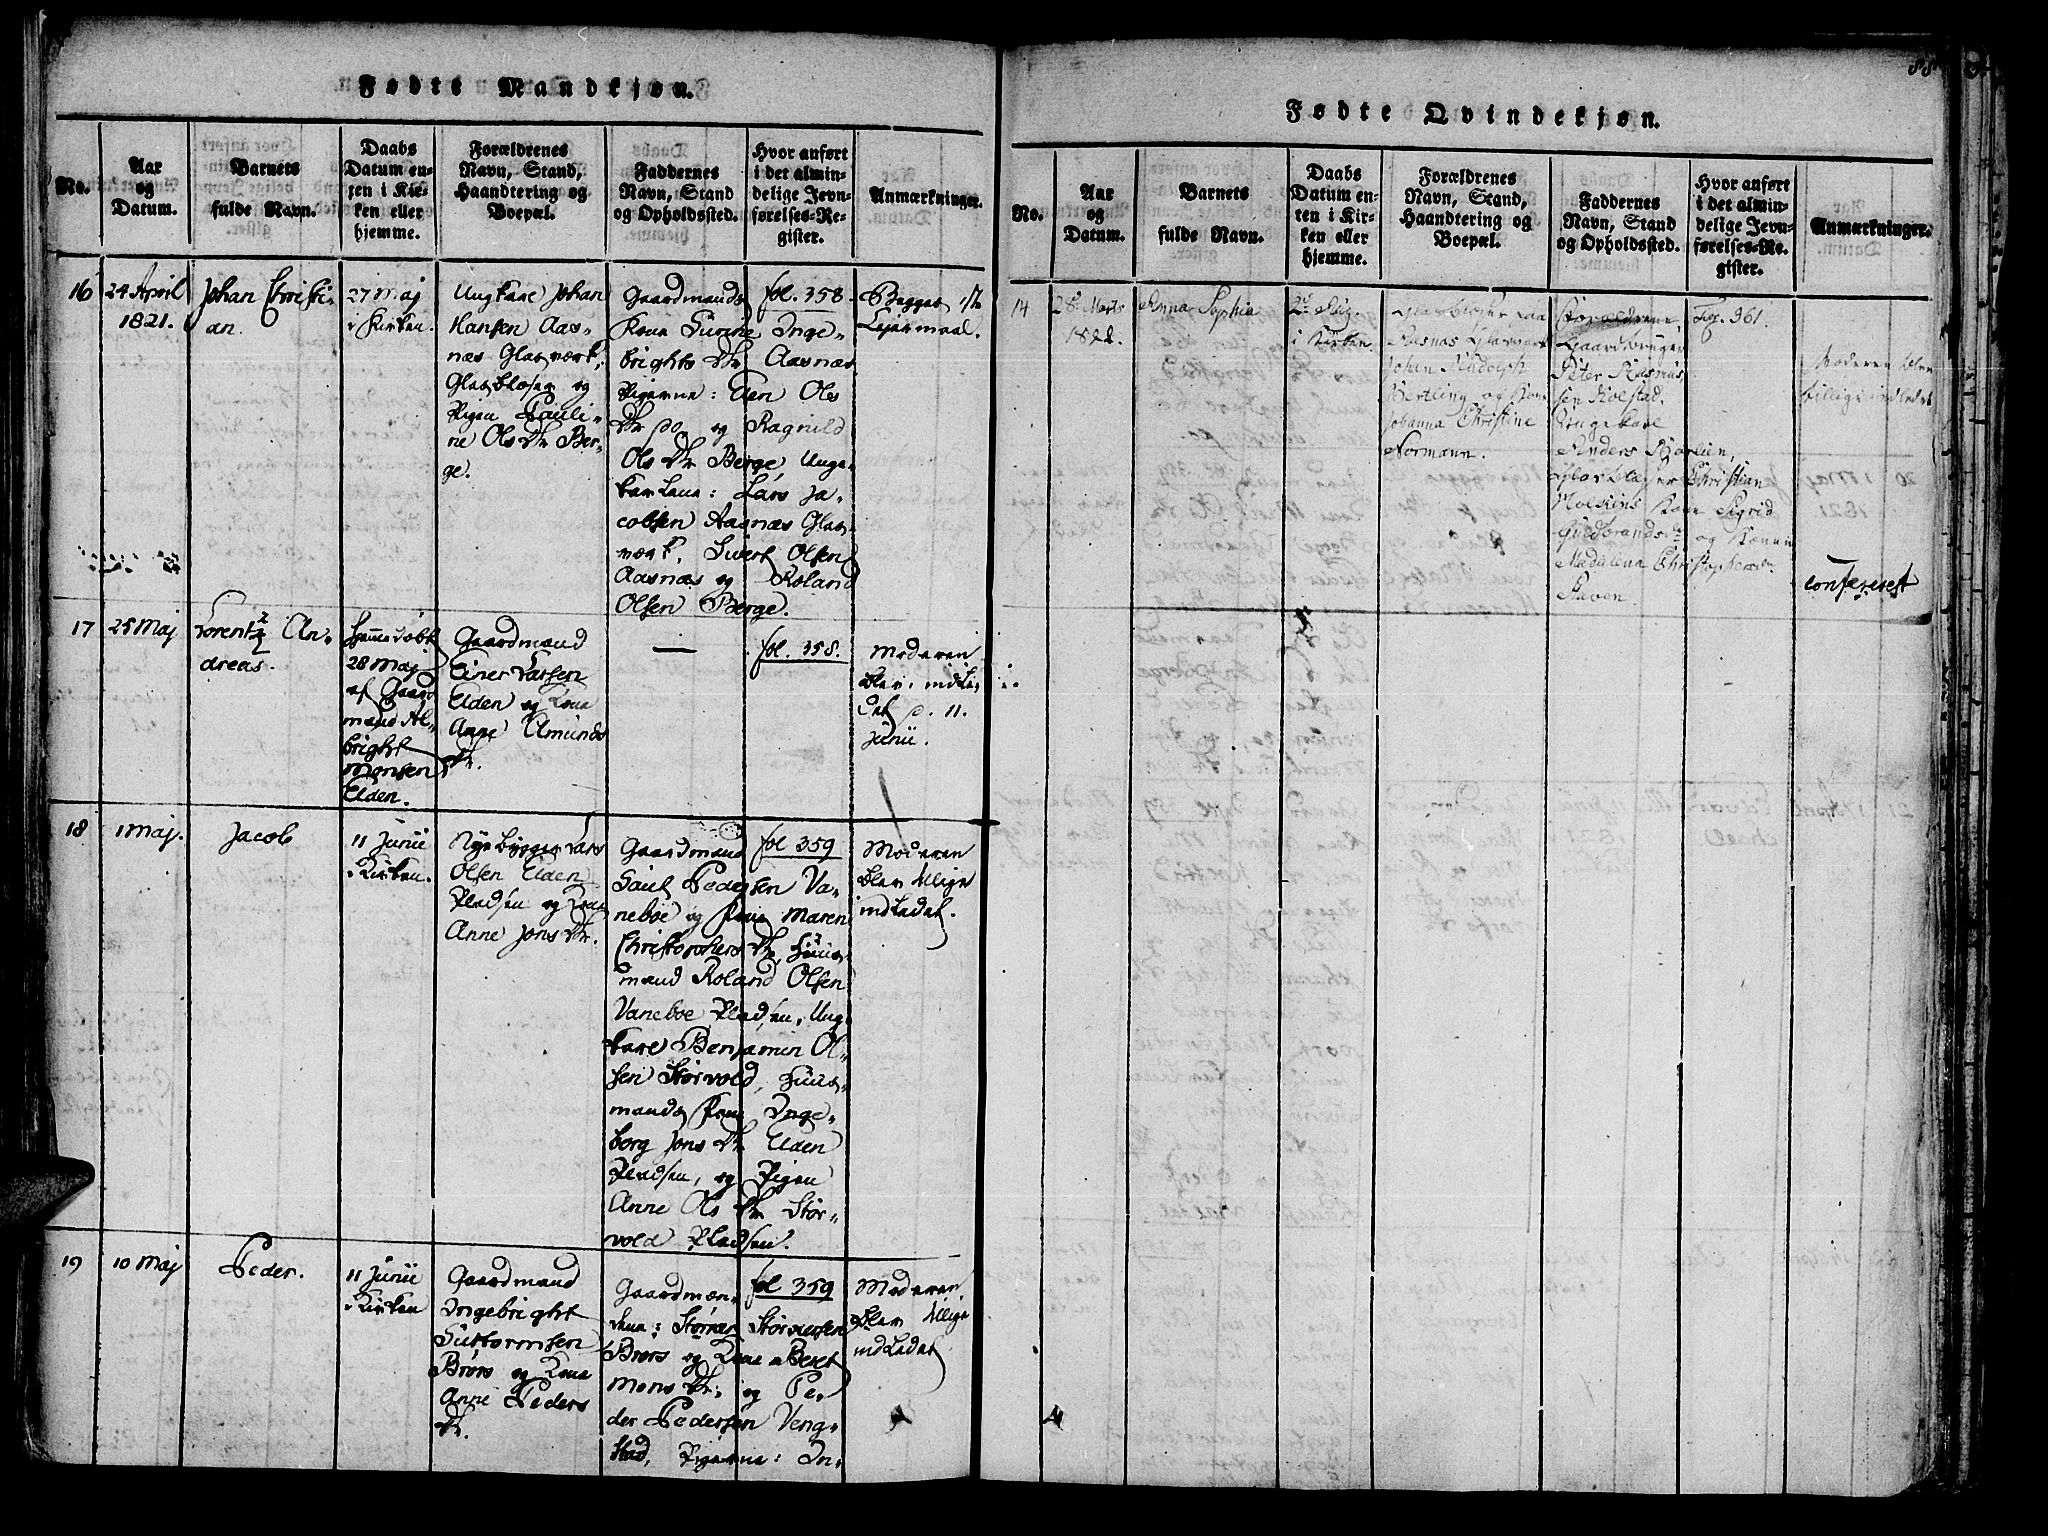 Fødte Mandkjøn.
No.
Aar
og
Datum.
Barnets
fulde Navn.
Daabs
Datum en-
ten i Kir-
ken eller
hjemme.
Forældrenes
Navn, Stand,
Haandtering og
Boepæl.
Faddernes
Navn, Stand
og Opholdssted.
Hvor anført
i det almin-
delige Jevn-
førelses-Re-
gister.
Anmærkninger.
16
24 April
1821.
Johan Christi-
an.
27 Maj
i Kirken.
Ungkarl Johan
Hansen Aas-
næs Glasværk,
Glasblæser og
Pigen Pauli-
ne Ols Dtr Ber-
ge.
Gaardmands
Kone Gurine Inge-
brights Dtr Aasnæs
Pigerne: Aen Ols
Dtr og Ragnild
Ols Dtr Berge Unge-
karlene: Lars Ja-
cobsen Aasnæs Glas-
værk, Sivert Olsen
Aasnæs og Roland
Olsen Berge.
fol. 358.
Begges
Lejermaal.
17
25 Maj
Lorentz An-
dreas.
Hjemmedøbt
28 Maj
af Gaard
mand Al-
bright
Monsen
Elden.
Gaardmand
Einer Larsen
Elden og Kone
Anne Amunds
Dtr.
—
fol. 358.
Moderen
blev indle-
det d. 11.
Junii.
18
1 Maj.
Jacob
11 Junii
i Kirken.
Nyebygger Lars
Olsen Elden
Pladsen og Kone
Anne Jons Dtr.
Gaardmand
Saul Pedersen Va-
neboe og Kone Maren
Christophers Dtr, Huus-
mand Roland Olsen
Vaneboe Pladsen, Ung-
karl Benjamin Ol-
sen Storvold, Huus-
mands Kone Inge-
borg Jons Dtr Elden
Pladsen, og Pigen
Anne Ols Dtr Stor-
vold Pladsen.
fol 359
Moderen
blev tillige
indledet.
19
10 Maj
Peder.
11 Junii
i Kirken
Gaardmand
Ingebright
Guttormsen
Brørs og Kone
Anne Peders
Dtr.
Gaardmæn-
dene: Størner Størnersen
Brørs og Kone Beret
Mons Dtr: og Pe-
der Pedersen Veng-
stad, Pigerne: In-
fol 359
Moderen
blev tillige
indledet
88
Fødte Qvindekjøn.
No.
Aar
og
Datum.
Barnets
fulde Navn.
Daabs
Datum en-
ten i Kir-
ken eller
hjemme.
Forældrenes
Navn, Stand,
Haandtering og
Boepæl.
Faddernes
Navn, Stand
og Opholdssted.
Hvor anført
i det almin-
delige Jevn-
førelses-Re-
gister.
Anmærkninger.
14
28 Marts
Anna Sophia
2 Aug.
i Kirken.
Glasblæser paa
Aasnæs Glasværk
Johan Rudolph
Hertling og Kone
Johanna Christine
Normann.
Forældrene,
Gaardbruger
Peter Rasmus-
sen Kolstad.
Ungekarl
Anders Kjærlien,
Glasblæser Christian
Kone Sigrid
Gudbrandsd. og Konen
Madalena Christophersdr.
Staven.
Fol. 361.
Moderen blev
tillige indledet
confereret